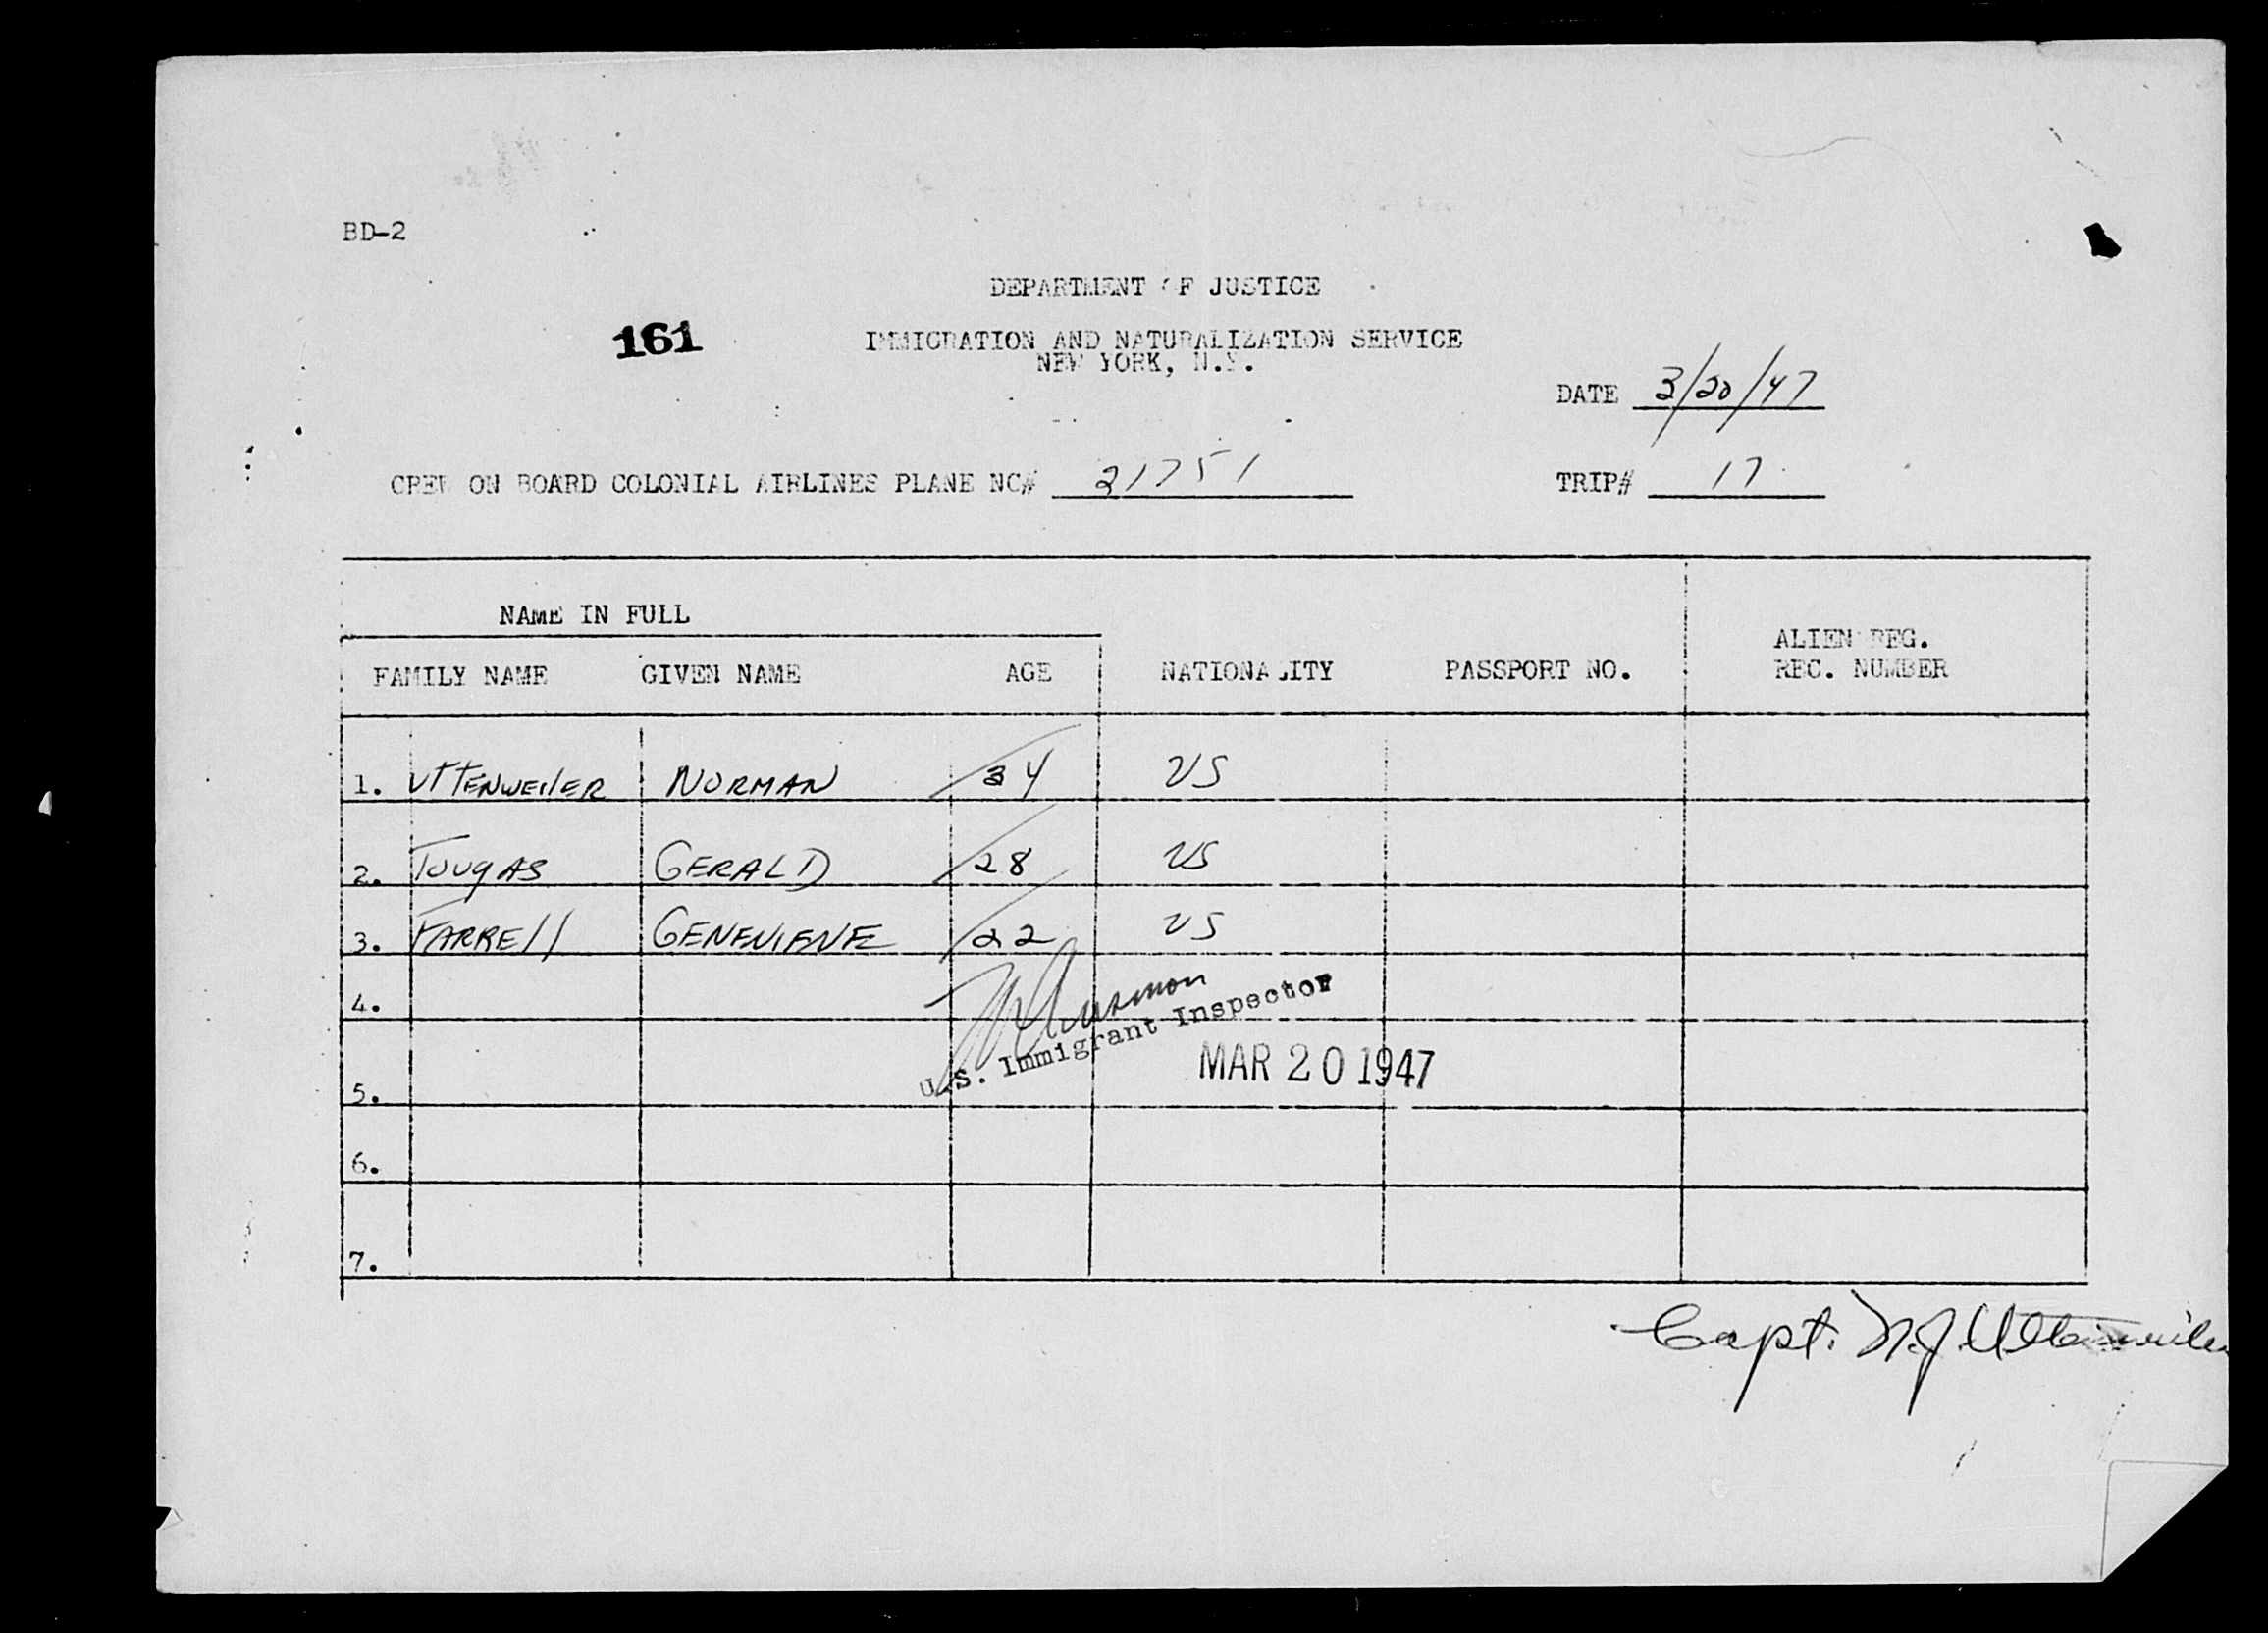 BD-2
DEPARTMENT OF JUSTICE
161
IMMIGRATION AND NATURALIZATION SERVICE
NEW YORK, N.Y.
DATE 3/20/47
CREW ON BOARD COLONIAL AIRLINES PLANE NC# 21751
TRIP# 17
NAME IN FULL
FAMILY NAME GIVEN NAME AGE NATIONALITY PASSPORT NO. ALIEN REG. REC. NUMBER
1. UTTENWEILER NORMAN 34 US
2. TOUGAS GERALD 28 US
3. FARRELL GENEVIEVE 22 US
4.
U.S. Immigrant Inspector
MAR 20 1947
5.
6.
7.
Capt. N.J. Uttenweiler